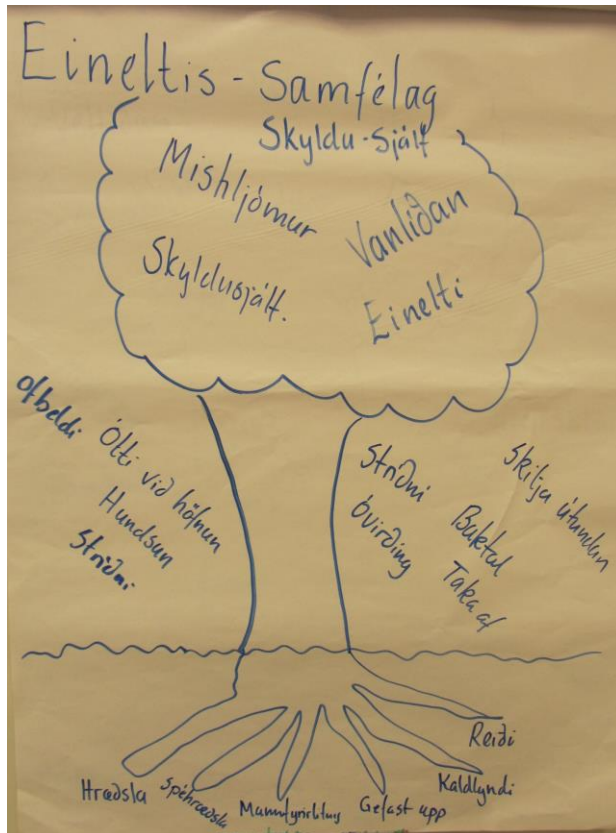 Eineltis - Samfélag
Skyldu-sjálf
Mishljómur
Vanlíðan
Skyldusjálf.
Einelti
Ofbeldi
Ótti við höfnun
Hundsun
Stríðni
Stríðni
Óvirðing
Skilja útundan
Baktal
Taka af
Reiði
Kaldlyndi
Hræðsla
Spéhræðsla
Mannfyrirlitning
Gefast upp